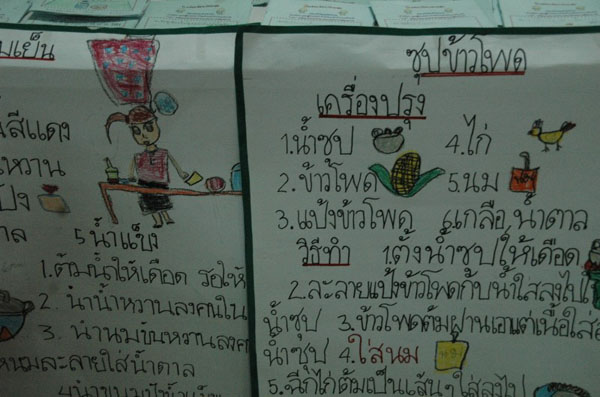 มเย็น
นสีแดง
หวาน
ป้ง
าล
5.น้ำแข็ง
1.ต้มน้ำให้เดือด รอให้
2. นำน้ำหวานลงคนใน
3. นำนมข้นหวานลงค
นมละลายใส่น้ำตาล
ซุปข้าวโพด
เครื่องปรุง
1.น้ำซุป 4.ไก่
2.ข้าวโพด 5.นม
นม
3.แป้งข้าวโพด 6.เกลือ น้ำตาล
วิธีทำ 1.ตั้งน้ำซุปให้เดือด
2.ละลายแป้งข้าวโพดกับน้ำใส่ลงไป
น้ำซุป 3.ข้าวโพดต้มฝานเอาแต่เนื้อใส่
น้ำซุป 4.ใส่นม
นม
5.ฉีกไก่ต้มเป็นเส้นๆใส่ลงไป